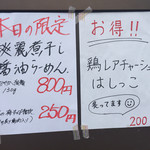 本日の限定
淡麗煮干し
醤油らーめん
800円
150g
250円
お得!!
鶏レアチャーシュー
はしっこ
売ってます
200